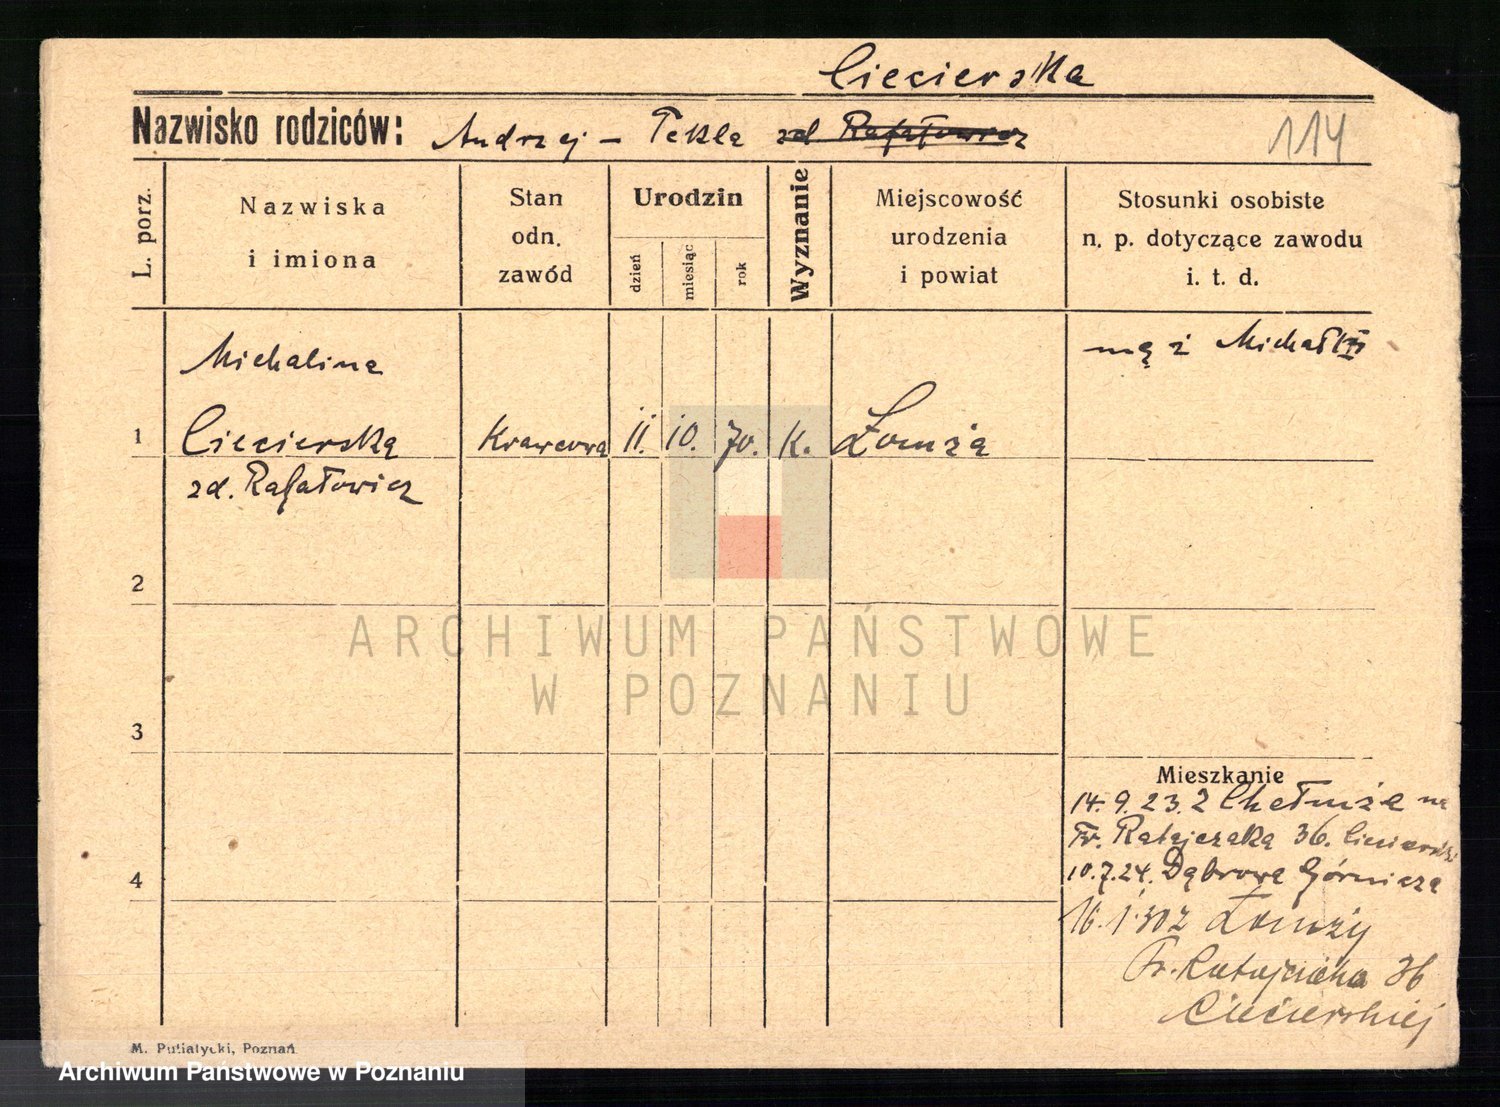 Ciecierska
Nazwisko rodziców: Andrzej – Tekla zd Rafałowicz
114
L. porz.
Nazwiska
i imiona
Stan
odn.
zawód
Urodzin
dzień
miesiąc
rok
Wyznanie
Miejscowość
urodzenia
i powiat
Stosunki osobiste
n. p. dotyczące zawodu
i. t. d.
Michalina
mąż Michał
1 Ciecierska Krawcowa 11. 10. 70. k. Łomża
zd. Rafałowicz
2
ARCHIWUM PAŃSTWOWE
W POZNANIU
3
Mieszkanie
14. 9. 23. z Chełmża na
Fr. Ratajczaka 36. Ciecierski
10.7.24. Dąbrowa Górnicza
4
16. 1. 30 z Łomży
Fr. Ratajczaka 36
Ciecierskiej
M. Putiatycki, Poznań
Archiwum Państwowe w Poznaniu